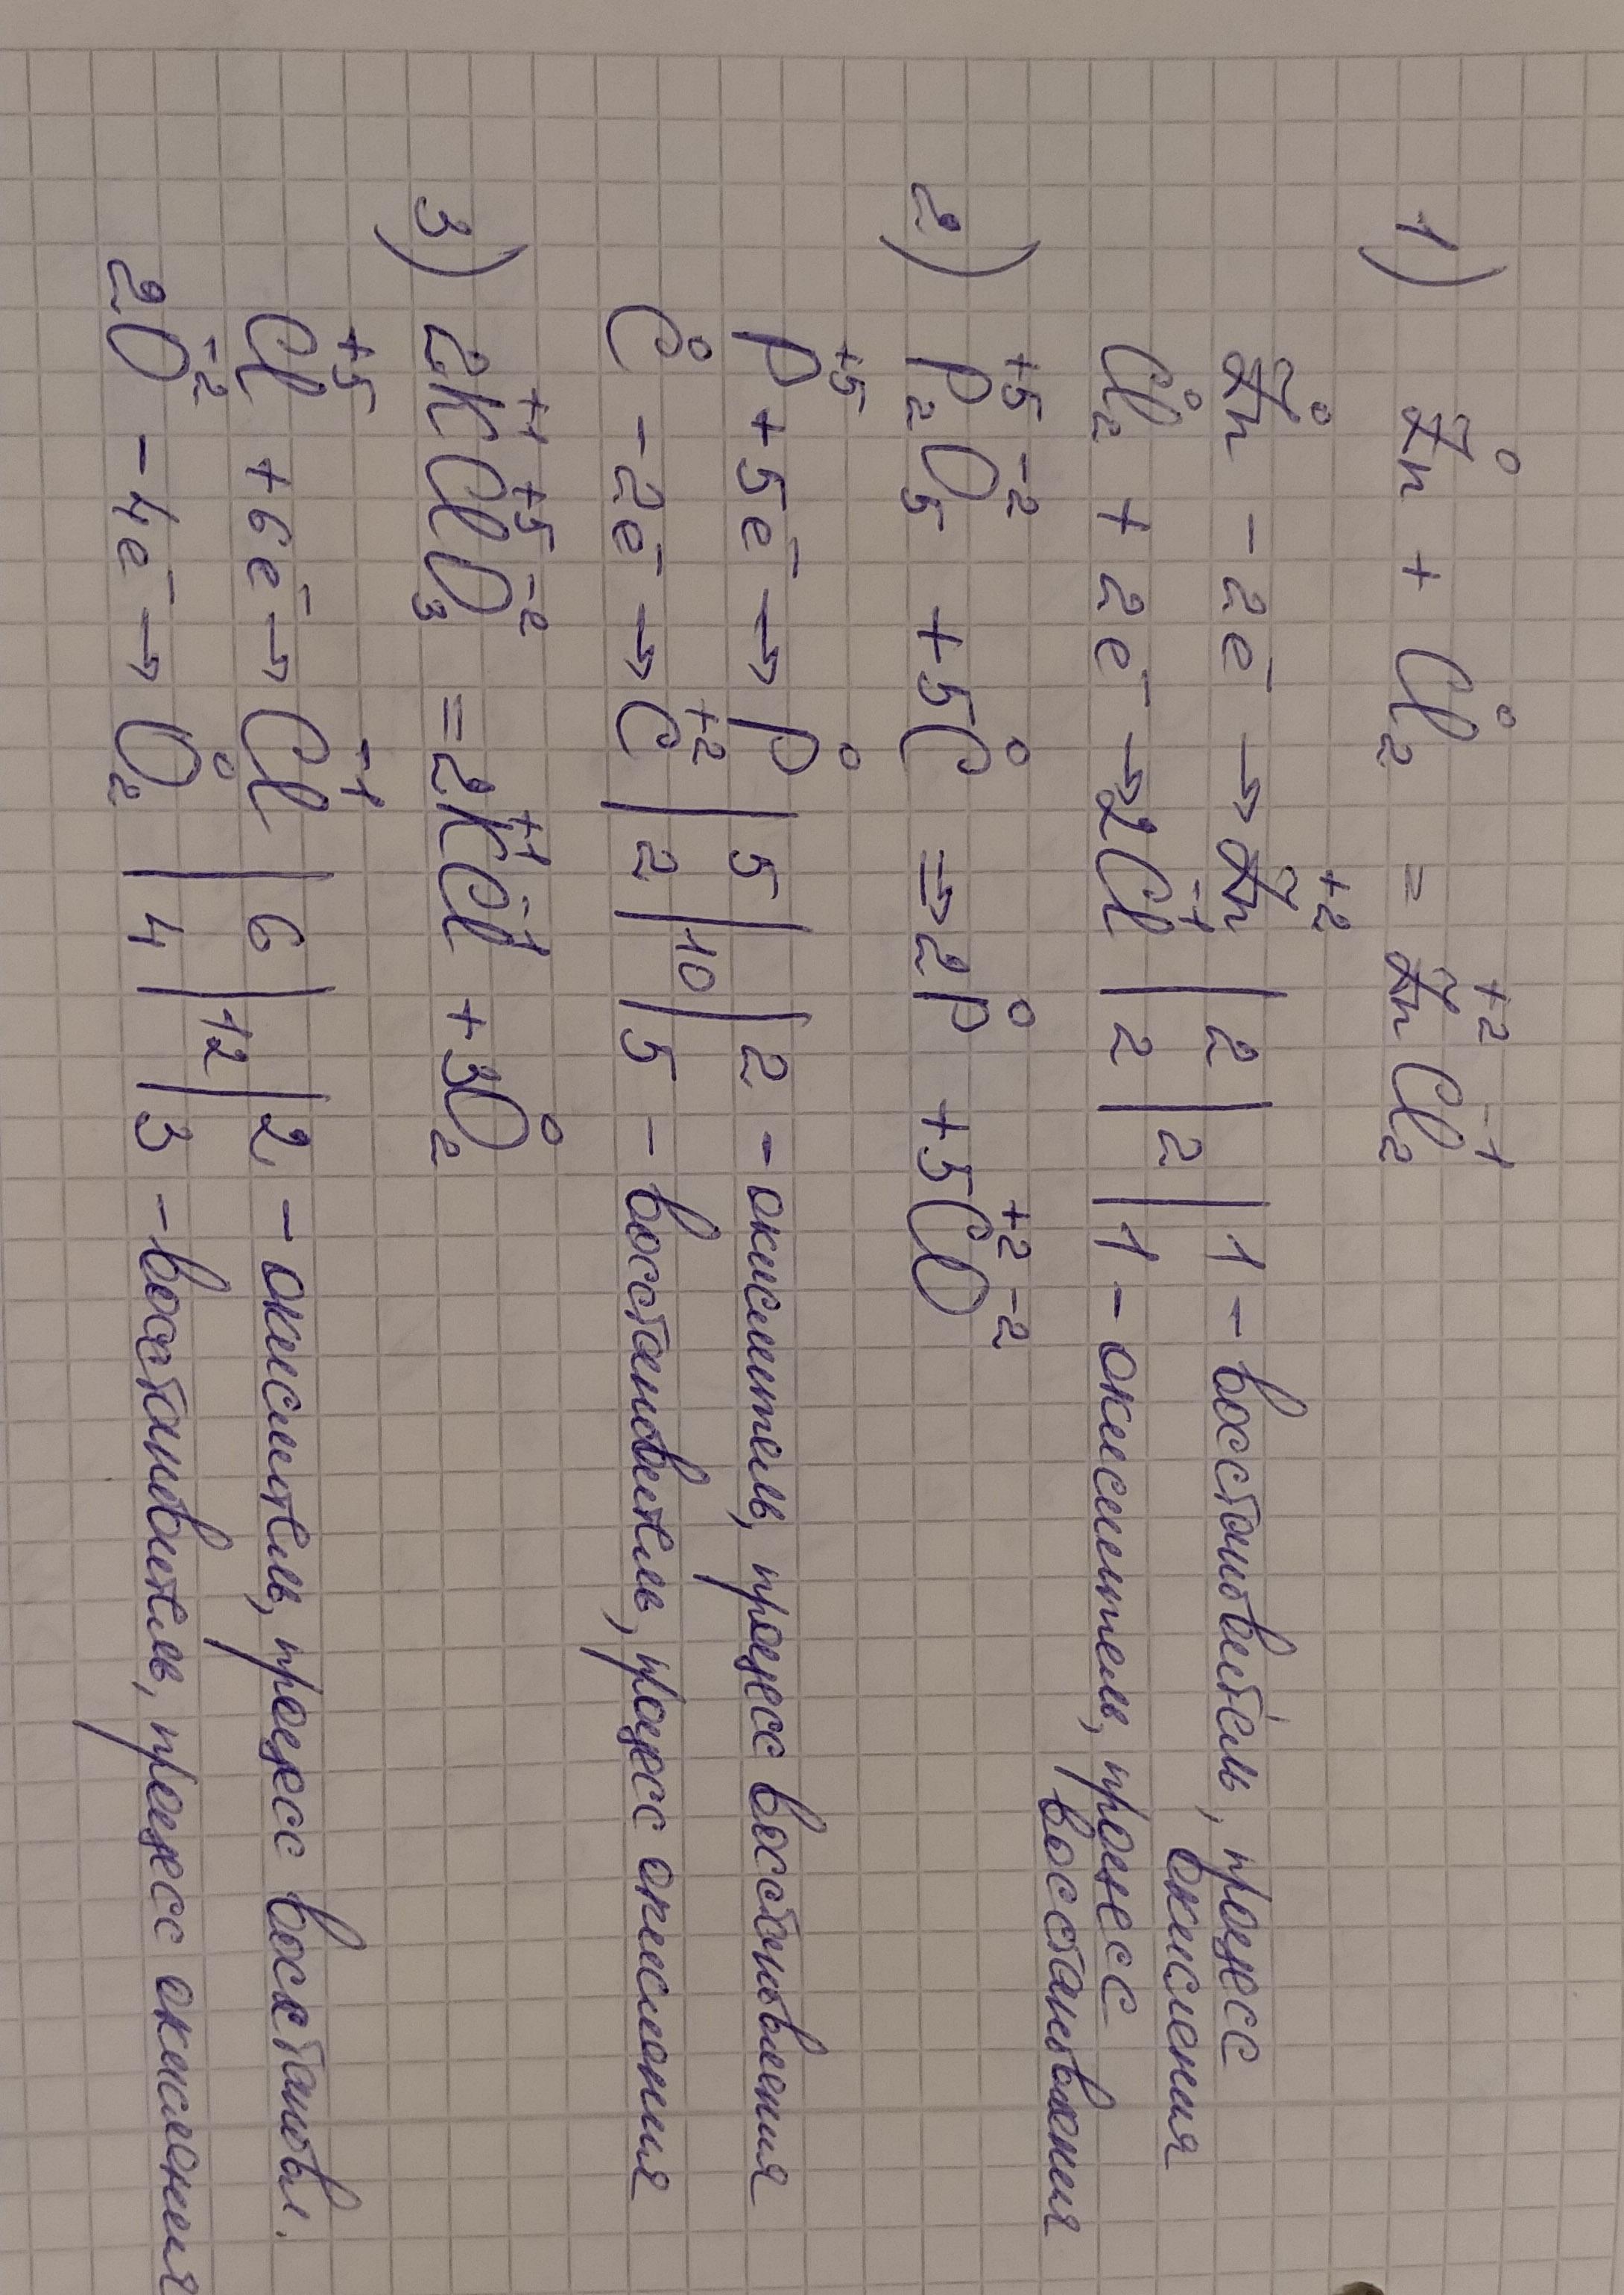 1) Zn⁰ + Cl₂⁰ = Zn⁺²Cl₂⁻¹
Zn⁰ - 2e⁻ → Zn⁺² | 2 | 2 | 1 - восстановитель, процесс окисления
Cl₂⁰ + 2e⁻ → 2Cl⁻¹ | 2 | 1 - окислитель, процесс восстановления
2) P₂⁺⁵O₅⁻² + 5C⁰ => 2P⁰ + 5C⁺²O⁻²
P⁺⁵ + 5e⁻ → P⁰ | 5 | 10 | 2 - окислитель, процесс восстановления
C⁰ - 2e⁻ → C⁺² | 2 | 5 - восстановитель, процесс окисления
3) 2K⁺¹Cl⁺⁵O₃⁻² = 2K⁺¹Cl⁻¹ + 3O₂⁰
Cl⁺⁵ + 6e⁻ → Cl⁻¹ | 6 | 12 | 2 - окислитель, процесс восстановл.
2O⁻² - 4e⁻ → O₂⁰ | 4 | 3 - восстановитель, процесс окисления